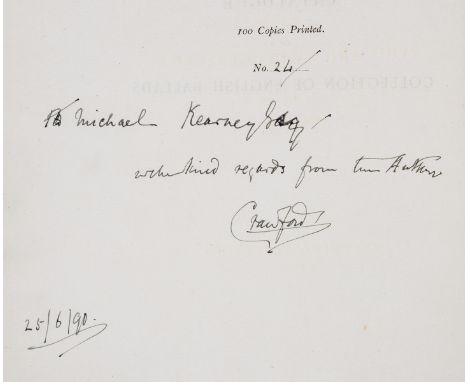 100 Copies Printed.
No. 24
To Michael Kearney Esq
with kind regards from the Author
Crawford
25/6/90.